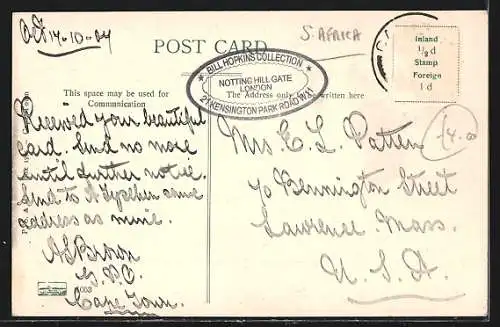 Oct 14-10-04
S. AFRICA
POST CARD
BILL HOPKINS COLLECTION
NOTTING HILL GATE
LONDON
21 KENSINGTON PARK ROAD W.11
Inland
½d
Stamp
Foreign
1d
This space may be used for
Communication
The Address only written here
Received your beautiful
card. Send no more
until further notice.
Send to A. same
address as mine.
A S Brown
G.P.O.
Cape Town.
Mrs C. L. Patten
70 Bennington Street
Lawrence. Mass.
U. S. A.